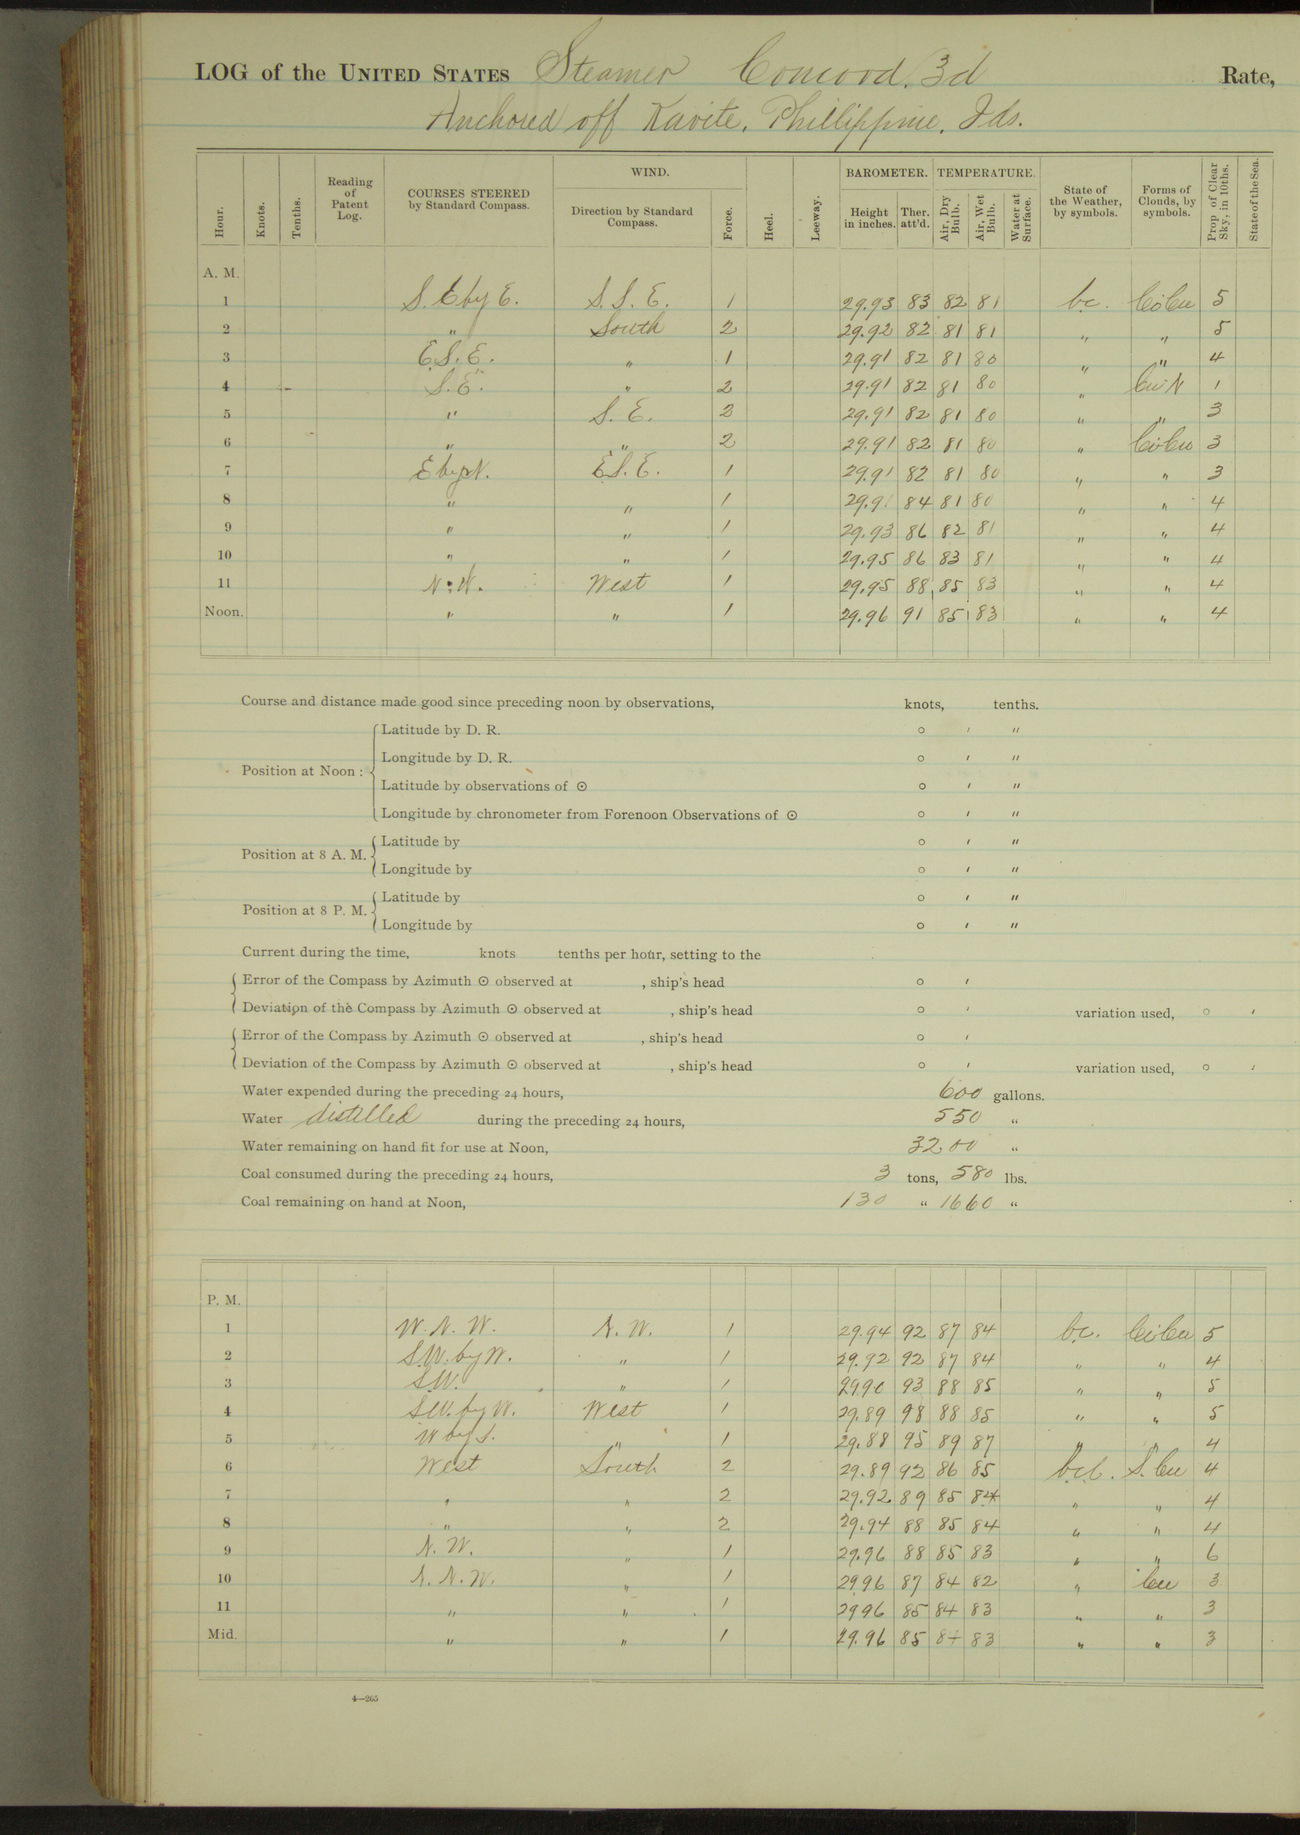 LOG of the UNITED STATES Steamer Concord, 3d Rate,
Anchored off Kavite, Phillippine, Ids.
Hour. Knots. Tenths. Reading of Patent Log. COURSES STEERED by Standard Compass. WIND. Direction by Standard Compass. Force. Heel. Leeway. BAROMETER. Height in inches. Ther. att'd. TEMPERATURE. Air, Dry Bulb. Air, Wet Bulb. Water at Surface. State of the Weather, by symbols. Forms of Clouds, by symbols. Prop of Clear Sky, in 10ths. State of the Sea.
A. M.
1 S. E by E. S. S. E. 1 29.93 83 82 81 bc. Ci Cu 5
2 " South 2 29.92 82 81 81 " " 5
3 E.S.E. " 1 29.91 82 81 80 " " 4
4 S.E. " 2 29.91 82 81 80 " Cu N 1
5 " S. E. 2 29.91 82 81 80 " " 3
6 " " 2 29.91 82 81 80 " Ci Cu 3
7 E by N. E.S.E. 1 29.91 82 81 80 " " 3
8 " " 1 29.91 84 81 80 " " 4
9 " " 1 29.93 86 82 81 " " 4
10 " " 1 29.95 86 83 81 " " 4
11 N. W. West 1 29.95 88 85 83 " " 4
Noon. " " 1 29.96 91 85 83 " " 4
Course and distance made good since preceding noon by observations, knots, tenths.
Position at Noon: Latitude by D. R. ° ' "
Longitude by D. R. ° ' "
Latitude by observations of ⊙ ° ' "
Longitude by chronometer from Forenoon Observations of ⊙ ° ' "
Position at 8 A. M. Latitude by ° ' "
Longitude by ° ' "
Position at 8 P. M. Latitude by ° ' "
Longitude by ° ' "
Current during the time, knots tenths per hour, setting to the
Error of the Compass by Azimuth ⊙ observed at , ship's head ° '
Deviation of the Compass by Azimuth ⊙ observed at , ship's head ° ' variation used, ° '
Error of the Compass by Azimuth ⊙ observed at , ship's head ° '
Deviation of the Compass by Azimuth ⊙ observed at , ship's head ° ' variation used, ° '
Water expended during the preceding 24 hours, 600 gallons.
Water distilled during the preceding 24 hours, 550 "
Water remaining on hand fit for use at Noon, 3200 "
Coal consumed during the preceding 24 hours, 3 tons, 580 lbs.
Coal remaining on hand at Noon, 130 " 1660 "
P. M.
1 W. N. W. N. W. 1 29.94 92 87 84 bc. Ci Cu 5
2 S.W. by W. " 1 29.92 92 87 84 " " 4
3 S.W. " 1 29.90 93 88 85 " " 5
4 S.W. by W. West 1 29.89 98 88 85 " " 5
5 W by S. " 1 29.88 95 89 87 " " 4
6 West South 2 29.89 92 86 85 S. Cu 4
7 " " 2 29.92 89 85 84 " " 4
8 " " 2 29.94 88 85 84 " " 4
9 N. W. " 1 29.96 88 85 83 " " 6
10 N. N. W. " 1 29.96 87 84 82 " Cu 3
11 " " 1 29.96 85 84 83 " " 3
Mid. " " 1 29.96 85 84 83 " " 3
4—265